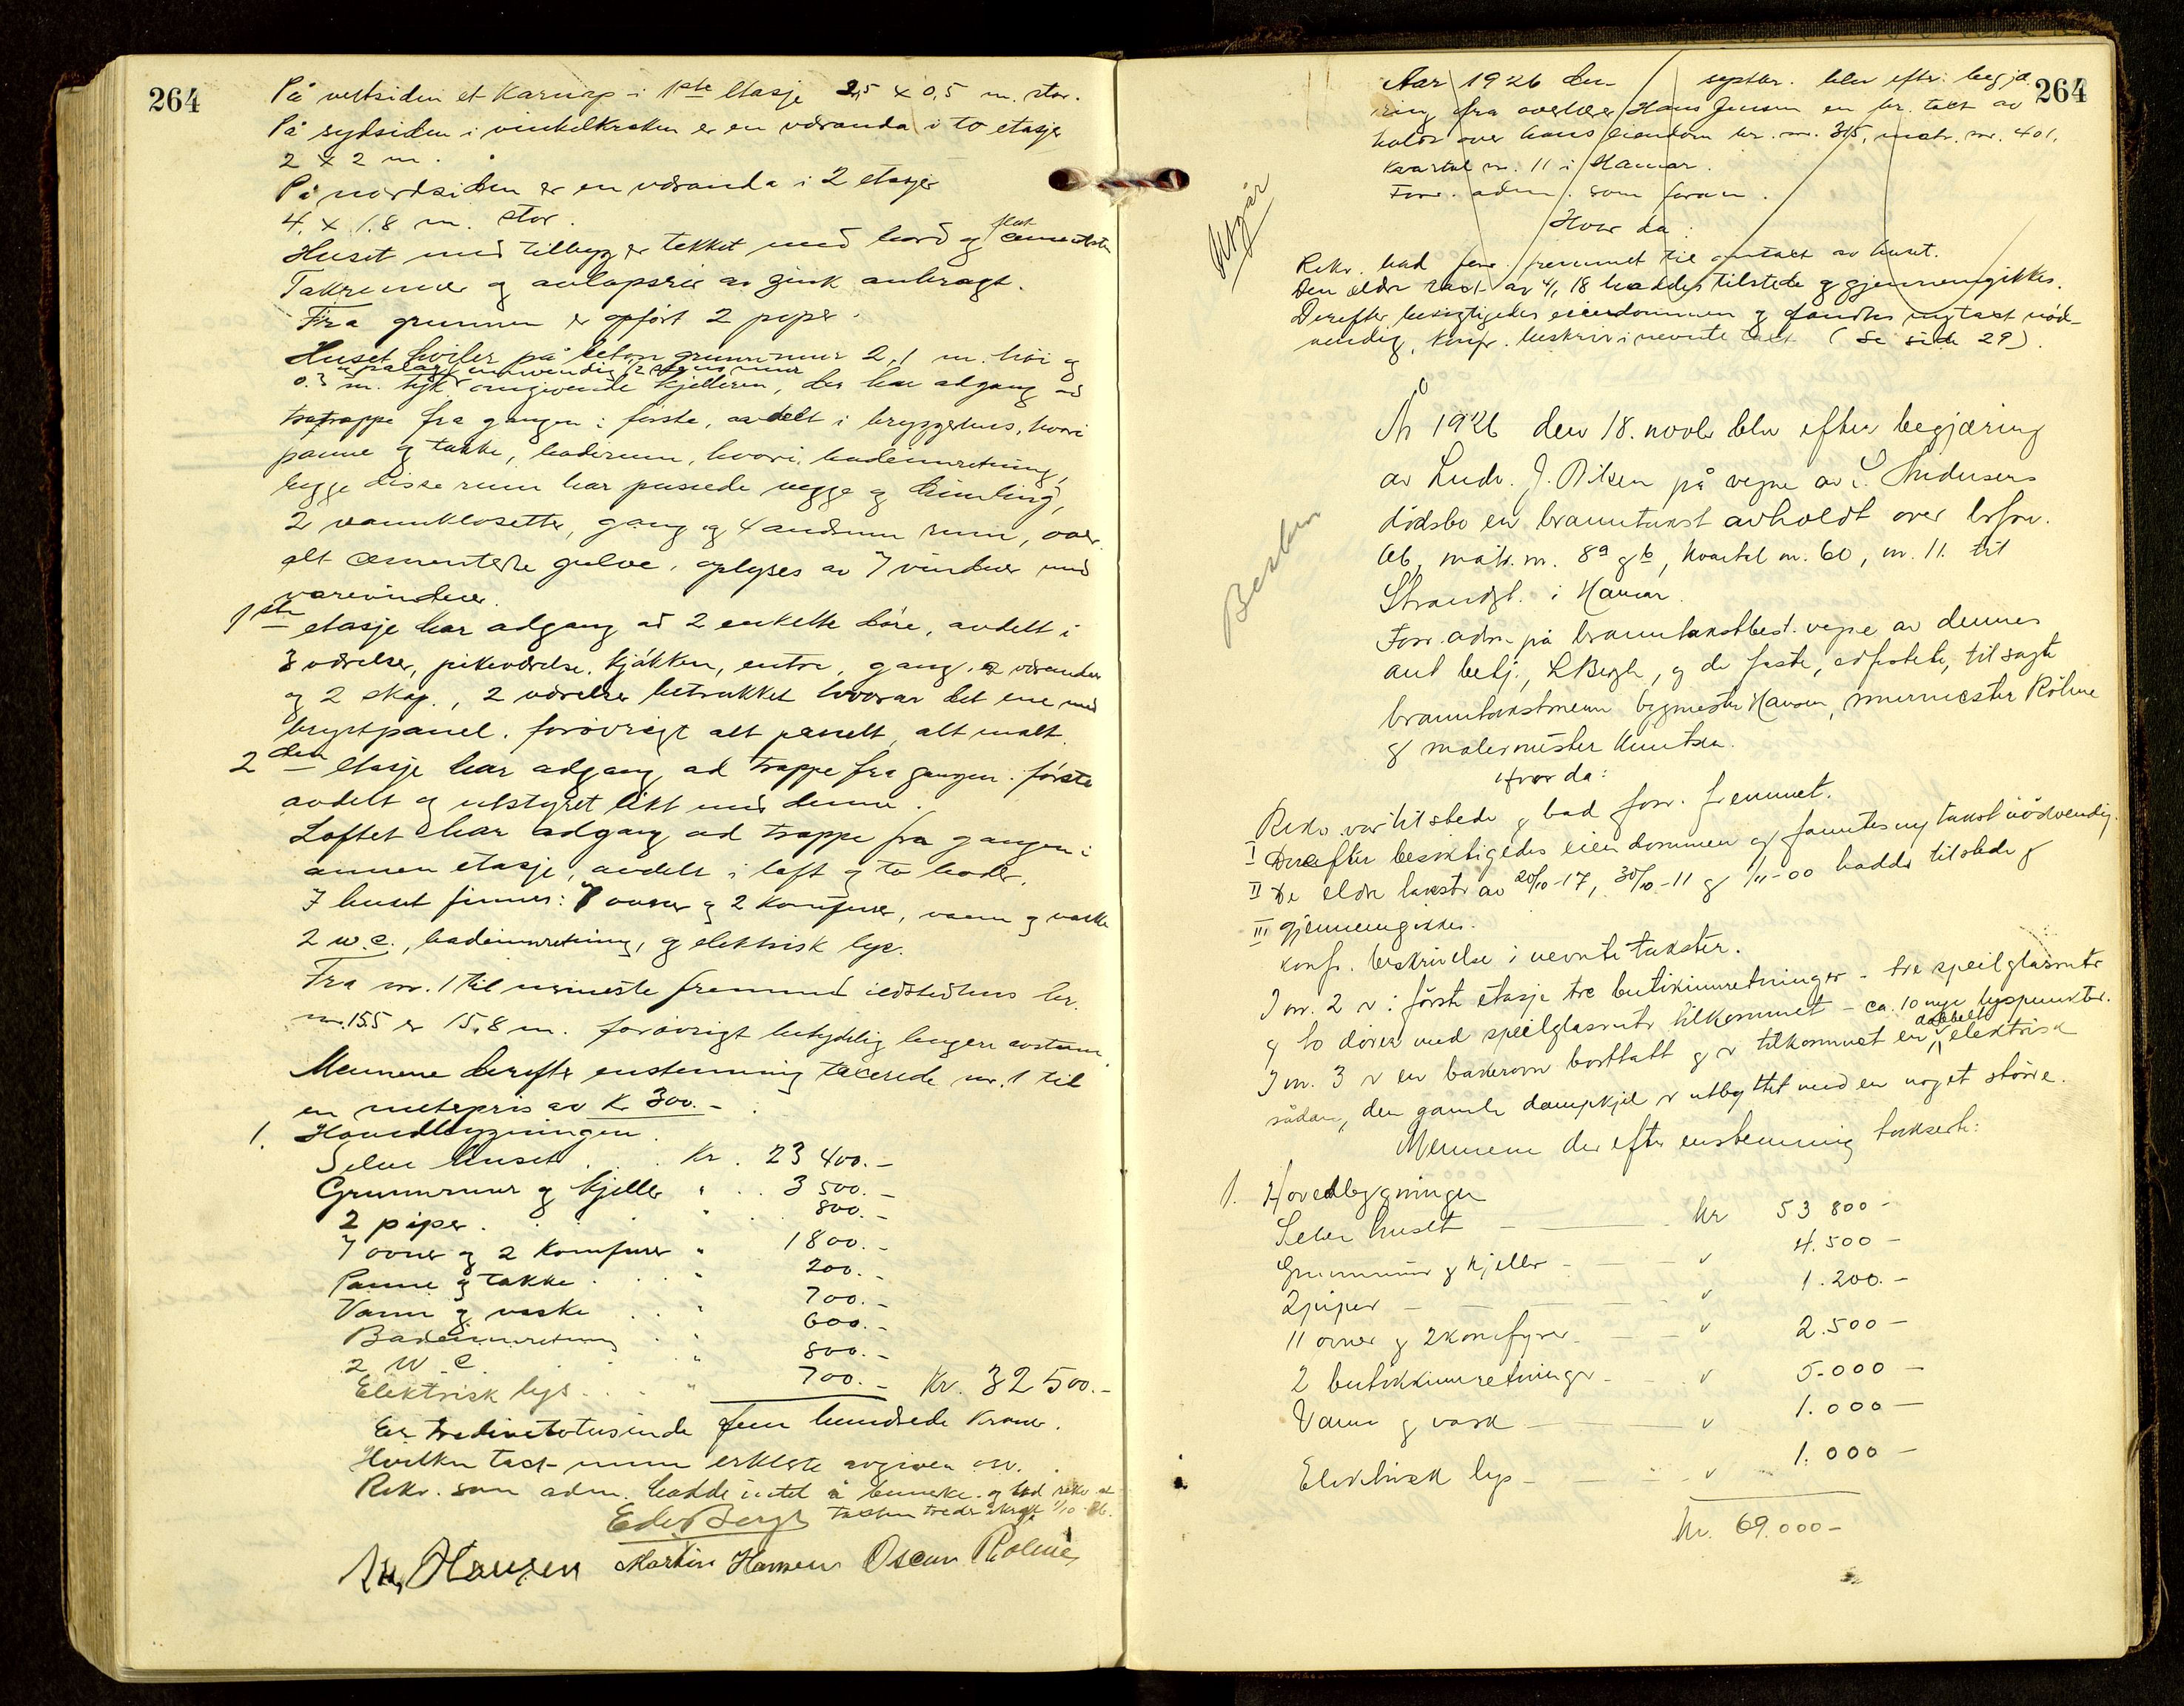 264
På vestsiden et Karnap i 1ste Etasje 2,5 x 0,5 m. stor.
På sydsiden i vinkelkroken er en veranda i to etasjer
2 x 2 m.
På nordsiden er en veranda i 2 etasjer
4. x 1.8 m. stor.
Huset med tilbygg er tekket med bord og flat cementsten
Takrenner og avløpsrør av zink anbragt.
Fra grunnen er opført 2 piper.
Huset hviler på beton grunnmur 2,1 m. høi og
0.3 m. tyk pålagt innvendig 1/2 stens mur omgivende kjelleren, der har adgang ad
tretrappe fra gangen i første, avdelt i bryggerhus, hvori
panne og takke, baderum, hvori badeinnretning,
begge disse rum har pussede vegge og himling,
2 vannklosetter, gang og 4 andrum rum, over
alt cementerte gulve, oplyses av 7 vinduer med
varevinduer.
1ste etasje har adgang ad 2 enkelte døre, avdelt i
3 værelser, pikeværelse, kjøkken, entre, gang, 2 verandaer
og 2 skap., 2 værelser betrukket hvorav det ene med
brystpanel. forøvrigt alt panelt, alt malt.
2den etasje har adgang ad trappe fra gangen i første
avdelt og utstyret likt med denne.
Loftet har adgang ad trappe fra gangen i
annen etasje, avdelt i loft og to boder.
I huset finnes: 7 ovner og 2 komfurer, vann og vaske
2 w.c., badeinnretning, og elektrisk lys.
Fra nr. 1 til nærmeste fremmed ildstedshus br.
nr. 155 er 15,8 m. forøvrigt betydelig lengere avstann.
Mennene derefter enstemmig taxerede nr. 1 til
en meterpris av K. 300.-
1. Hovedbygningen.
Selve huset . . . Kr. 23 400.-
Grunnmur og kjeller " . . 3 500.-
2 piper. . . " . . 800.-
7 ovner og 2 Komfurer " 1800.-
Panne og takke . . . " 200.-
Vann og vaske . . " 700.-
Badeinnretning . . " 600.-
2 W. C. . . " 800.-
Elektrisk lys . . . " 700.- Kr. 32 500.-
Er tredivetotusinde fem hundrede Kroner.
Hvilken taxt menn erklerte avgiven osv.
Rekv. som adm. hadde intet å bemerke. og bad rekv. at
taxten treder i kraft 1/10 - 26.
Edv. Bergh
Martin Hansen Oscar Rolme
264
Aar 1926 den septbr. blev eftr. begjæ
ring fra overlærer Hans Jensen en br. taxt av
holdt over hans eiendom br. nr. 315, matr. nr. 401,
kvartal nr. 11 i Hamar.
Forr. adm. som foran.
Hvor da:
Utgår
Rekv. bad forr. fremmet til omtaxt av huset.
Den eldre taxt av 4/1 18 haddes tilstede og gjennemgikkes.
Derefter besigtigedes eiendommen og fandtes nytaxt nød-
vendig, konfr. beskriv i nevnte taxt (Se side 29).
År 1926 den 18. novbr blev efter begjæring
av Ludv. J. Olsen på vegne av L. Andersens
dødsbo en branntakst avholdt over brfov.
06, matr. nr. 8a og b, kvartal nr. 60, nr. 11 til
Strandgt. i Hamar.
Forr. adm. på branntakstbest. vegne av dennes
aut betj., L Bergh, og de faste, edfestede, tilsagte
branntakstmenn bygmester Hansen, murmester Rölme
og malermester Knutsen.
Hvor da:
Rekv. var tilstede og bad forr. fremmet.
I Derefter besiktigedes eiendommen og fanntes ny takst nødvendig.
II De eldre takster av 20/10-17, 30/10-11 og 1/11-00 haddes tilstede og
III gjennemgikkes.
Konfr. beskrivelse i nevnte takster.
I nr. 2 er i første etasje tre butikinnretninger - tre speilglasruter
og to dører med speilglasruter tilkommet - ca. 10 nye lyspunkter.
I nr. 3 er en bakerovn borttatt og er tilkommet en dobbelt elektrisk
sådan, den gamle dampkjel er utbyttet med en noget større.
Mennene derefter enstemmig takserte:
1. Hovedbygningen
Selve huset - kr 53 800 -
Grunnmur og kjeller - - - " 4.500 -
2 piper - - - " 1.200. -
11 ovner og 2 komfyrer - - " 2.500 -
2 butikkinnretninger - - " 5.000 -
Vann og vask - " 1.000 -
Elektrisk lys - - - " 1.000 -
kr. 69.000 -